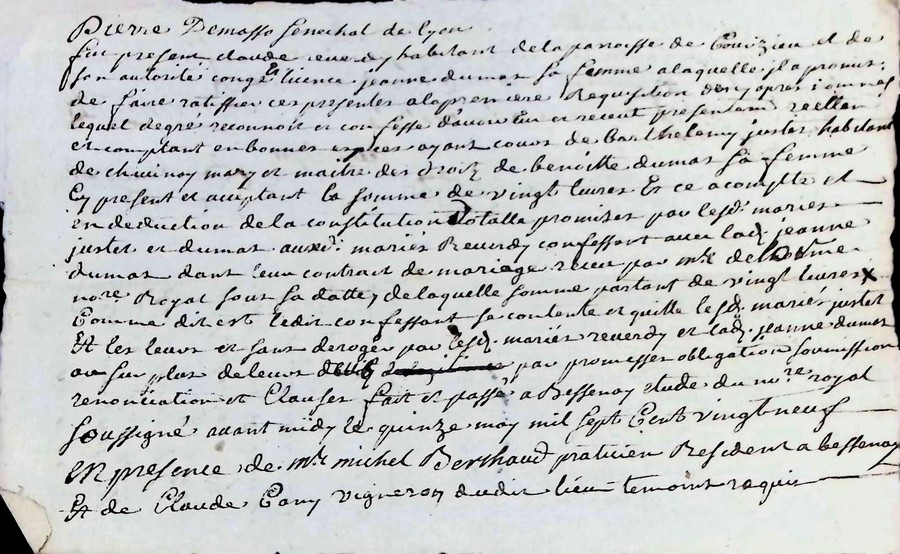 Pierre Demasso senechal de lyon
fut present claude reverdy habitant de la paroisse de Courzieu et de
son autorité congé et licence jeanne dumas sa femme a laquelle il a promis
de faire ratiffier ces presentes a la premiere Requisition
lequel degré reconnoit et confesse d'avoir eu et receut presentem reellem
et comptant en bonnes especes ayant cours de barthelemy justet habitant
de chevinay mary et maitre des droitz de benoitte dumas sa femme
Cy present et acceptant la somme de vingt livres Et ce a compte et
en deduction de la constitution totalle promises par lesd. mariés
justet et dumas auxd. mariés Reverdy confessant avec lad. jeanne
dumas dans leur contrat de mariage receu par mre delhorme
nore Royal sous sa datte, de laquelle somme partant de vingt livres x
Comme dit est ledit confessant se contente et quitte lesd. mariés justet
Et les leurs et sans deroger par lesd. mariés reverdy et lad. jeanne dumas
au surplus de leurs par promesses obligation soumission
renonciation et Clauses fait et passé a Bessenay etude du nore royal
soussigné avant midy le quinze may mil sept Cents vingt neuf
En presence de mre michel Berthaud praticien Resident a bessenay
Et de Claude Cany vigneron dudit lieu temoins requis